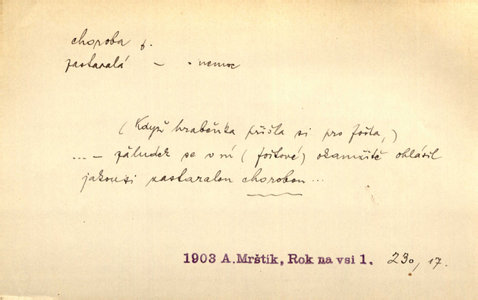 choroba f.
zastaralá – · nemoc
(Když hraběnka přišla si pro fošta,)
... – žaludek se v ní (foštové) okamžitě ohlásil
jakousi zastaralou chorobou ...
1903 A. Mrštík, Rok na vsi 1. 230, 17.